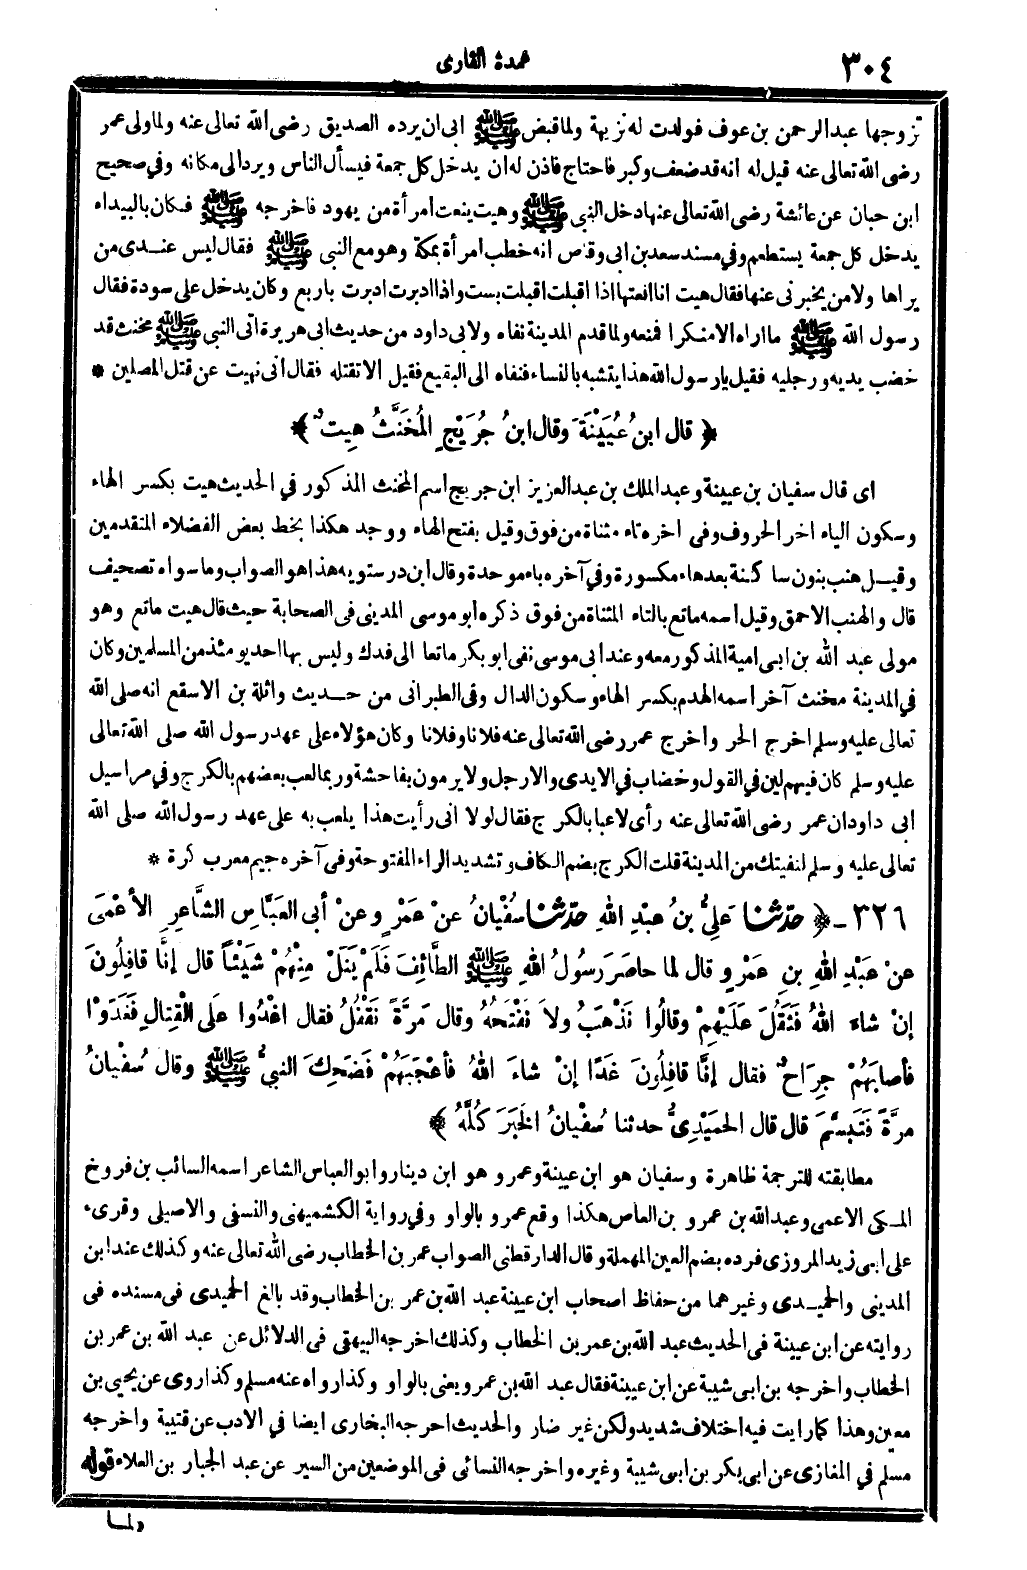 ٣٠٤
عمدة القارى
تزوجها عبدالرحمن بن عوف فولدت له نزيهة ولما قبض ﷺ ابى ان يرده الصديق رضى الله تعالى عنه ولما ولى عمر
رضى الله تعالى عنه قيل له انه قد ضعف وكبر فاحتاج فاذن له ان يدخل كل جمعة فيسأل الناس ويرد الى مكانه وفي صحيح
ابن حبان عن عائشة رضى الله تعالى عنها دخل النبى ﷺ وهيت ينعت امرأة من يهود فاخرجه ﷺ فكان بالبيداء
يدخل كل جمعة يستطعم وفي مسند سعد بن ابى وقاص انه خطب امرأة بمكة وهو مع النبى ﷺ فقال ليس عندى من
يراها ولا من يخبرنى عنها فقال هيت انا انعتها اذا اقبلت اقبلت بست واذا ادبرت ادبرت باربع وكان يدخل على سودة فقال
رسول الله ﷺ ما اراه الا منكرا فمنعه ولما قدم المدينة نفاه ولابى داود من حديث ابى هريرة اتى النبى ﷺ بمخنث قد
خضب يديه ورجليه فقيل يارسول الله هذا يتشبه بالنساء فنفاه الى البقيع فقيل الا تقتله فقال انى نهيت عن قتل المصلين *
﴿ قال ابنُ عُيَيْنَةَ وقال ابنُ جُرَيْجٍ المُخَنَّثُ هِيتٌ ﴾
اى قال سفيان بن عيينة وعبد الملك بن عبد العزيز ابن جريج اسم المخنث المذكور في الحديث هيت بكسر الهاء
وسكون الياء اخر الحروف وفى اخره تاء مثناة من فوق وقيل بفتح الهاء ووجد هكذا بخط بعض الفضلاء المتقدمين
وقيل هنب بنون ساكنة بعد هاء مكسورة وفي آخره باء موحدة وقال ابن درستويه هذا هو الصواب وما سواه تصحيف
قال والهنب الاحمق وقيل اسمه ماتع بالتاء المثناة من فوق ذكره ابو موسى المدينى فى الصحابة حيث قال هيت ماتع وهو
مولى عبد الله بن ابى امية المذكور معه وعند ابى موسى نفى ابو بكر ماتعا الى فدك وليس بها احد يومئذ من المسلمين وكان
في المدينة مخنث آخر اسمه الهدم بكسر الهاء وسكون الدال وفى الطبرانى من حديث واثلة بن الاسقع انه صلى الله
تعالى عليه وسلم اخرج الحر واخرج عمر رضى الله تعالى عنه فلانا وفلانا وكان هؤلاء على عهد رسول الله صلى الله تعالى
عليه وسلم كان فيهم لين في القول وخضاب في الايدى والارجل ولا يرمون بفاحشة وربما لعب بعضهم بالكرج وفي مراسيل
ابى داود ان عمر رضى الله تعالى عنه رأى لاعبا بالكرج فقال لولا انى رأيت هذا يلعب به على عهد رسول الله صلى الله
تعالى عليه وسلم لنفيتك من المدينة قلت الكرج بضم الكاف وتشديد الراء المفتوحة وفى آخره جيم معرب كرة *
٣٢٦ - ﴿ حدّثنا عَلِيُّ بنُ عبْدِ اللهِ حدّثنا سُفْيَانُ عنْ عَمْرٍو عنْ أبى العَبَّاسِ الشَّاعِرِ الأعْمَى
عنْ عبْدِ اللهِ بنِ عَمْرٍو قال لما حاصَرَ رسولُ اللهِ ﷺ الطَّائِفَ فَلَمْ يَنَلْ مِنْهُمْ شَيْئاً قال إنَّا قافِلُونَ
إنْ شاءَ اللهُ فَثَقُلَ عَلَيْهِمْ وقالُوا نَذْهَبُ ولاَ نَفْتَحُهُ وقال مَرَّةً نَقْفُلُ فقال اغْدُوا علَى القِتالِ فَغَدَوْا
فأصابَهُمْ جِرَاحٌ فقال إنَّا قافِلُونَ غَدًا إنْ شاءَ اللهُ فأعْجَبَهُمْ فَضَحِكَ النبىُّ ﷺ وقال سُفْيانُ
مرَّةً فَتَبَسَّمَ قال قال الحمَيْدِىُّ حدثنا سُفْيانُ الخَبَرَ كُلَّهُ ﴾
مطابقته للترجمة ظاهرة وسفيان هو ابن عيينة وعمرو هو ابن دينار وابو العباس الشاعر اسمه السائب بن فروخ
المكى الاعمى وعبدالله بن عمرو بن العاص هكذا وقع عمرو بالواو وفي رواية الكشميهنى والنسفى والاصيلى وقرىء
على ابى زيد المروزى فرده بضم العين المهملة وقال الدارقطنى الصواب عمر بن الخطاب رضى الله تعالى عنه وكذلك عند ابن
المدينى والحميدى وغيرهما من حفاظ اصحاب ابن عيينة عبد الله بن عمر بن الخطاب وقد بالغ الحميدى فى مسنده فى
روايته عن ابن عيينة فى الحديث عبد الله بن عمر بن الخطاب وكذلك اخرجه البيهقى فى الدلائل عن عبد الله بن عمر بن
الخطاب واخرجه بن ابى شيبة عن ابن عيينة فقال عبد الله بن عمرو يعنى بالواو وكذا رواه عنه مسلم وكذا روى عن يحيى بن
معين وهذا كما رايت فيه اختلاف شديد ولكن غير ضار والحديث اخرجه البخارى ايضا في الادب عن قتيبة واخرجه
مسلم في المغازى عن ابى بكر بن ابى شيبة وغيره واخرجه النسائى فى الموضعين من السير عن عبد الجبار بن العلاء قوله
«لما